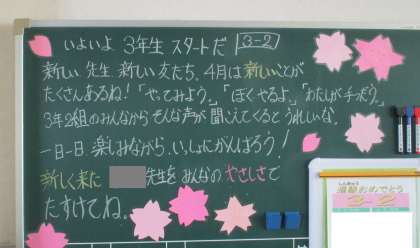 いよいよ 3年生 スタートだ 3-2
新しい 先生 新しい 友だち、4月は 新しいことが
たくさんあるね!「やってみよう。」「ぼく やるよ。」「わたしが
3年2組のみんなから そんな声が 聞こえてくると うれしいな。
一日一日 楽しみながら、いっしょにがんばろう!
新しく来た 先生を みんなの やさしさで
たすけてね。
進級おめでとう
3-2